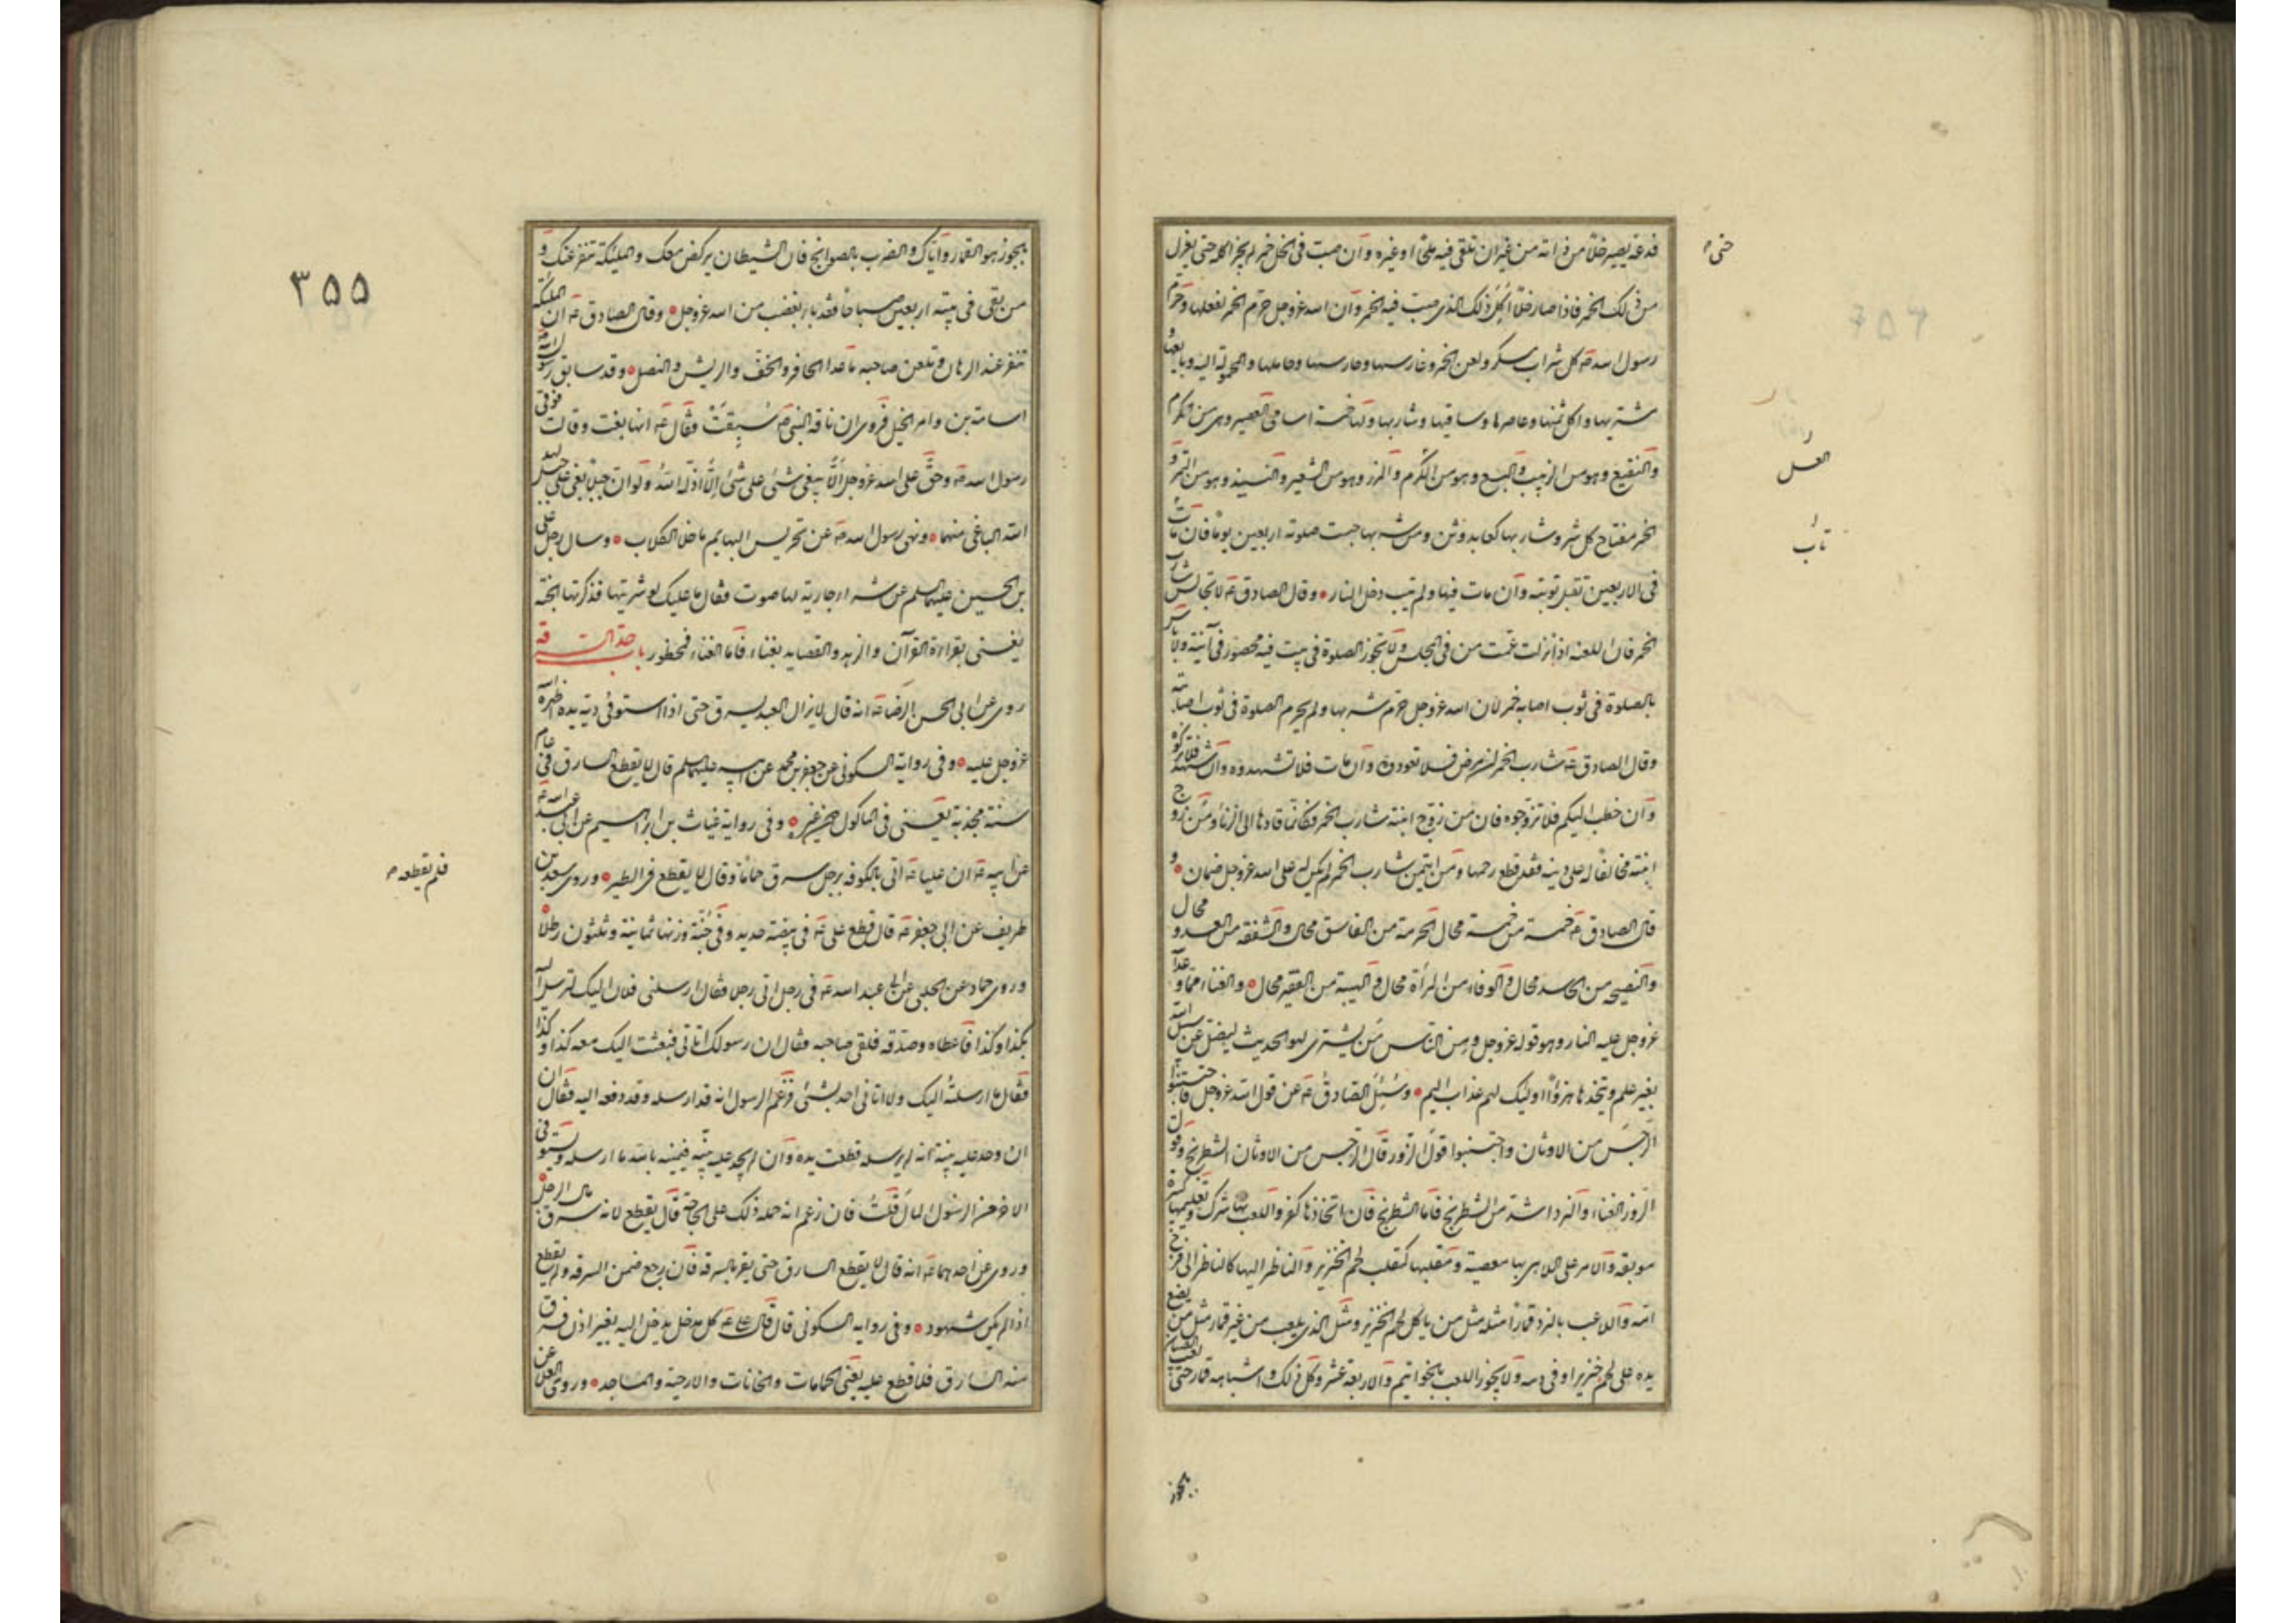 فدعه يصير خلا من ذاته من غير ان تلقى فيه ملحًا او غيره وان صبت في الخل خمر لم يجز اكله حتى يعزل
من ذلك الخمر فاذا صار خلًّا اُكِلَ ذلك الذى صبت فيه الخمر وان الله عز وجل حرّم الخمر بعينها وحرّم
رسول الله صه كل شراب مسكر ولعن الخمر وغارسها وحارسها وحاملها والمحمولة اليه وبايعها و
مشتريها واكل ثمنها وعاصرها وساقيها وشاربها ولها خمسة اسامى العصير وهو من الكرم
والنقيع وهو من الزبيب والبتع وهو من الكرم والمزر وهو من الشعير والنبيذ وهو من التمر و
الخمر مفتاح كل شر وشاربها كعابد وثن ومن شربها حبست صلوته اربعين يومًا فان تاب
فى الاربعين لم تقبل توبته وان مات فيها ولم يتب دخل النار وقال الصادق عه لا تجالس شارب
الخمر فان اللعنة اذا نزلت عمّت من فى المجلس ولا تجوز الصلوة فى بيت فيه خمر محصور فى آنية ولا باس
بالصلوة فى ثوب اصابه خمر لان الله عز وجل حرّم شربها ولم يحرم الصلوة فى ثوب اصابته
وقال الصادق عه شارب الخمر ان مرض فلا تعودوه وان مات فلا تشهدوه وان شهد فلا تزكوه
وان خطب اليكم فلا تزوّجوه فان من زوّج ابنته شارب الخمر فكانّما قادها الى الزنا ومن زوج
ابنته مخالفًا له على دينه فقد قطع رحمها ومن ائتمن شارب الخمر لم يكن له على الله عز وجل ضمان و
قال الصادق عه خمسة من خمسة محال الحرمة من الفاسق محال والشفقة من العدو محال
والنصيحة من الحاسد محال والوفاء من المرأة محال والهيبة من الفقير محال والغناء مما وعد الله
عز وجل عليه النار وهو قوله عز وجل ومن الناس من يشترى لهو الحديث ليضل عن سبيل الله
بغير علم ويتخذها هزوًا اولئك لهم عذاب اليم وسُئِلَ الصّادق عه عن قول الله عز وجل فاجتنبوا
الرجس من الاوثان واجتنبوا قول الزور قال الرجس من الاوثان الشطرنج وقول
الزور الغناء والنرد اشد من الشطرنج فاما الشطرنج فان اتخاذها كفر واللعب بها شرك وتعليمها كبيرة
موبقة والسلام على اللاهى بها معصية ومقلبها كمقلب لحم الخنزير والناظر اليها كالناظر الى فرج
امه واللاعب بالنرد قمارًا مثله مثل من ياكل لحم الخنزير ومثل الذى يلعب من غير قمار مثل من يضع
يده على لحم خنزير او فى دمه ولا يجوز اللعب بالخواتيم والاربعة عشر وكل ذلك واشباهه قمار حتى لعب الصبيان
حتى
العسل
تاب
بجوز
٣٥٥
بجوز هو القمار واياك والضرب بالصوانج فان الشيطان يركض معك والمليكة تنفر عنك و
من بقى فى بيته اربعين صباحًا فقد باء بغضب من الله عز وجل وقال الصادق عه ان المليكة
تنفر عند الرهان وتلعن صاحبه ما خدا الحافر والخف والريش والنصل وقد سابق رسول الله صه
اسامة بن زيد واجرى الخيل فروى ان ناقة النبى صه سُبِقَتْ فقال عه انها بغت وقالت فوقى
رسول الله صه وحق على الله عز وجل الّا يبغى شئ على شئ الّا اذلّه الله ولو ان جبلا بغى على جبل لهد
الله الباغى منهما ونهى رسول الله صه عن تحريش البهايم ما خلا الكلاب وسال رجل على
بن الحسين عليهما السلم عن شراء جارية لها صوت فقال ما عليك لو شريتها فذكرتها الجنة
يعنى بقراءة القرآن والزهد والفضايل بغناء فاما الغناء فمحظور باب حد السرقه
روى عن ابى الحسن الرضا عه انه قال لا يزال العبد يسرق حتى اذا استوفى دية يده اظهره الله
عز وجل عليه وفى رواية السكونى عن جعفر بن محمد عن ابيه عليهما السلم قال لا يقطع السارق فى عام
سنة مجدبة يعنى فى الماكول دون غيره وفى رواية غياث بن ابراهيم عن ابى عبد الله عه
عن ابيه عه ان عليا عه اتى بالكوفه برجل سرق حمامًا وقال لا يقطع فى الطير وروى سعد بن
طريف عن ابى جعفر عه قال قطع على عه فى بيضة حديد وفى جُنّة وزنها ثمانية وثلثون رطلًا
وروى حماد عن الحلبى عن ابى عبد الله عه فى رجل اتى رجلا فقال ارسلنى فلان اليك لترسل اليه
بكذا وكذا فاعطاه وصدّقه فلقى صاحبه فقال ان رسولك اتانى فبعثت اليك معه كذا وكذا
فقال ما ارسلته اليك ولا اتانى احد بشئ فزعم الرسول انه قد ارسله وقد دفعه اليه فقال ان
ان وجد عليه بينة انه لم يرسله قطعت يده وان لم يجد عليه بينة فيمينه بالله ما ارسله ويستوفى
الاخر من الرسول المال قلت فان زعم انه حمله ذلك على الحاجة قال يقطع لانه سرق مال الرجل
وروى عن احدهما عه انه قال لا يقطع السارق حتى يقر بالسرقة فان رجع ضمن السرقة ولم يقطع
اذا لم يكن شهود وفى رواية السكونى قال قال على عه كل مدخل يدخل اليه بغير اذن فسرق
منه السارق فلا قطع عليه يعنى الحمامات والخانات والارحية والمساجد وروى العلا عن
فلم يقطعه